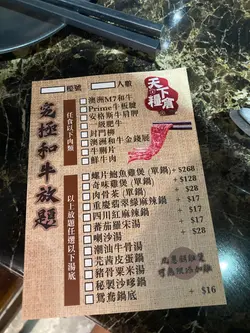 檯號 人數
天下食種
究極和牛放題
任食以下肉類
澳洲M7和牛
Prime牛板腱
安格斯牛肩胛
一級肥牛
封門柳
澳洲和牛金錢展
牛𦟌片
鮮牛肉
以上放題任選以下湯底
螺片鮑魚雞煲 (單鍋) +$268
奇味雞煲 (單鍋) +$128
肉骨茶 (單鍋) +$128
重慶翡翠綠麻辣鍋 +$17
四川紅麻辣鍋 +$28
蕃茄羅宋湯 +$28
喇沙湯
潮汕牛骨湯
花膠皮蛋鍋
豬骨粟米湯
秘製沙嗲鍋
鴛鴦鍋底 +$16